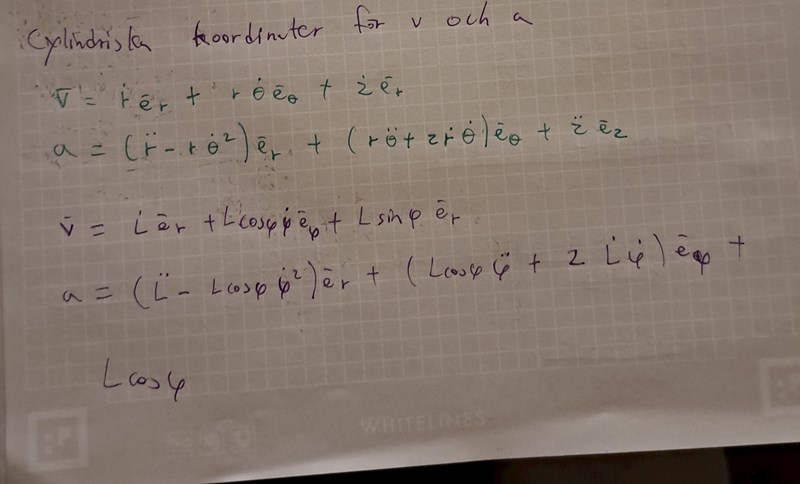 Cylindriska koordinater för v och a
v̄ = ṙ ē_r + r θ̇ ē_θ + ż ē_r
a = (r̈ - r θ̇²) ē_r + (r θ̈ + 2 ṙ θ̇) ē_θ + z̈ ē_z
v̄ = L̇ ē_r + L cosφ φ̇ ē_φ + L sinφ ē_r
a = (L̈ - L cosφ φ̇²) ē_r + (L cosφ φ̈ + 2 L̇ φ̇) ē_φ +
L cosφ
WHITELINES